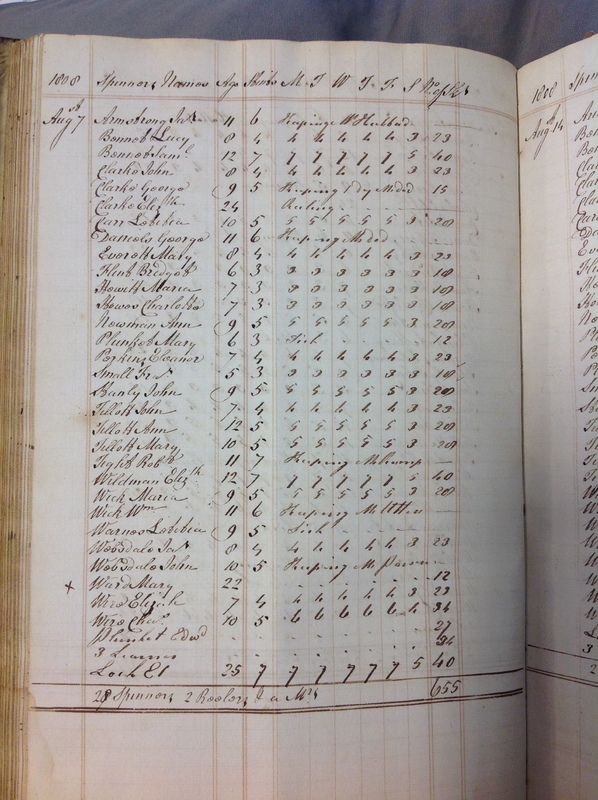 1808 Spinners Names Age Stints M. T W T F. S No of Sks
Augt 7 Armstrong Jas 11 6 Keeping
Bonnet Lucy 8 4 4 4 4 4 4 3 23
Bonnet Saml 12 7 7 7 7 7 7 5 40
Clarke John 8 4 4 4 4 4 4 3 23
Clarke George 9 5 Keeping 15
Clarke Elizth 24 Reeling
Carr Lœtitia 10 5 5 5 5 5 5 3 28
Daniels George 11 6 Keeping
Everett Mary 8 4 4 4 4 4 4 3 23
Flint Bridget 6 3 3 3 3 3 3 3 18
Howitt Maria 7 3 3 3 3 3 3 3 18
Howes Charlotte 7 3 3 3 3 3 3 3 18
Newman Ann 9 5 5 5 5 5 5 3 28
Plunket Mary 6 3 Sick 12
Perkins Eleanor 7 4 4 4 4 4 4 3 23
Small 5 3 3 3 3 3 3 3 18
John 9 5 5 5 5 5 5 3 28
Tillott John 7 4 4 4 4 4 4 3 23
Tillott Ann 12 5 5 5 5 5 5 3 28
Tillott Mary 10 5 5 5 5 5 5 3 28
Tight Robt 11 7 Keeping
Wildman Elizth 12 7 7 7 7 7 7 5 40
Wick Maria 9 5 5 5 5 5 5 3 28
Wick Wm 11 6 Keeping
Warnes Lœtitia 9 5 Sick
Wobsdale Jas 8 4 4 4 4 4 4 3 23
Wobsdale John 10 5 Keeping
x Ward Mary 22 12
Wire Elizah 7 4 4 4 4 4 4 3 23
Wire Chas 10 5 6 6 6 6 6 4 34
Plunket Edwd 27
3 Learners 34
Lock El 25 7 7 7 7 7 7 5 40
Spinners 2 Reelers & a Mrs 655
1808
Augt 14